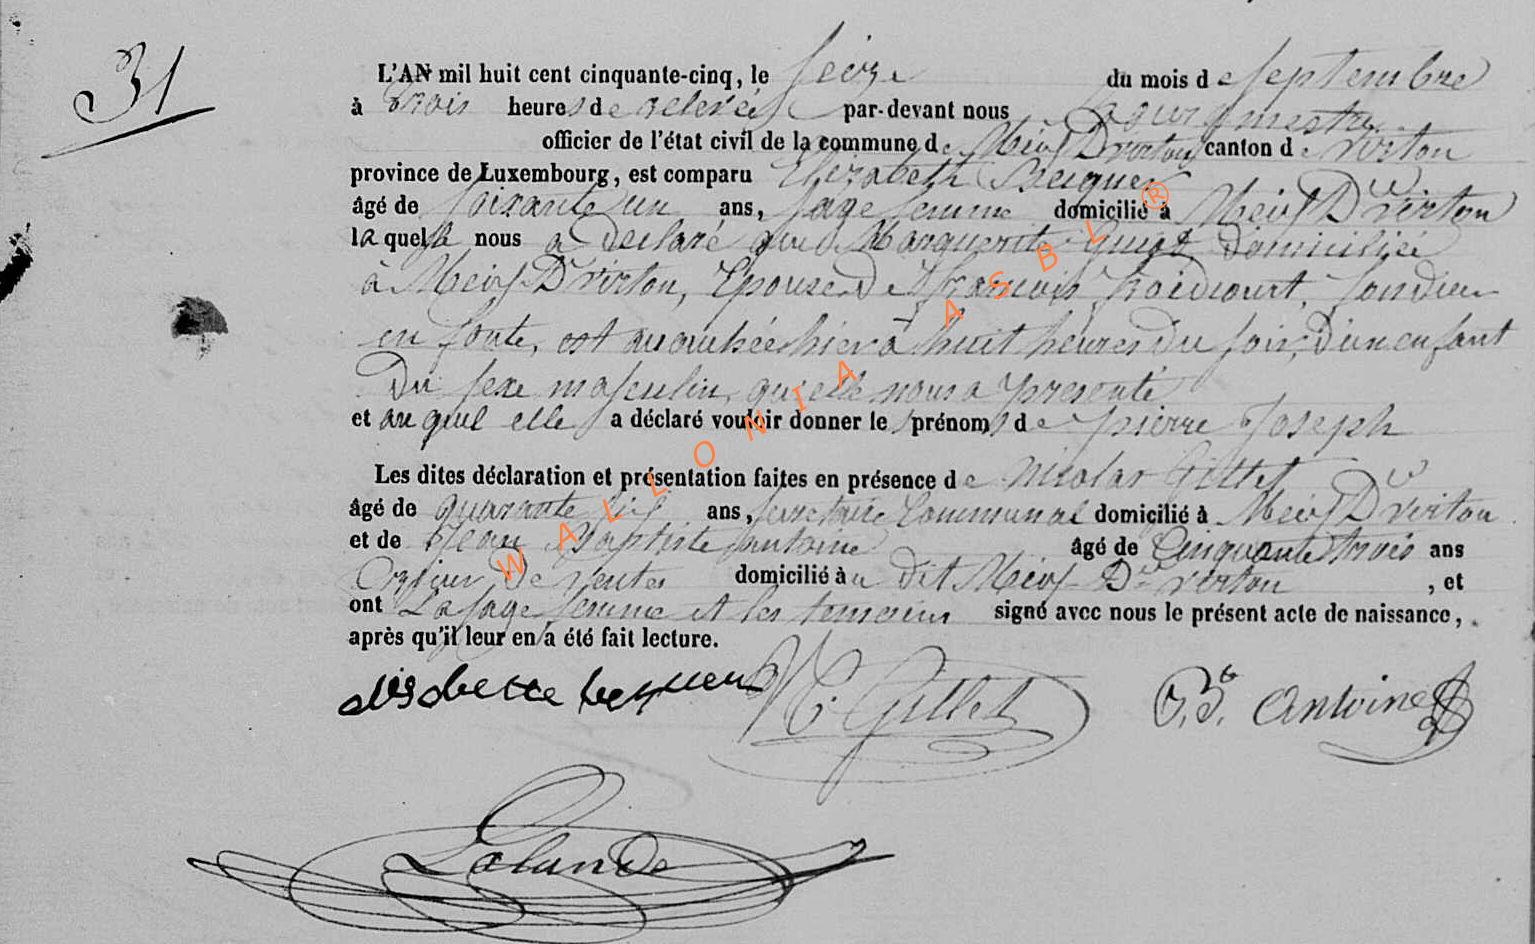 31
L'AN mil huit cent cinquante-cinq, le seize du mois de septembre
à trois heures de relevée par-devant nous Bourgmestre
officier de l'état civil de la commune de Meix Dt virton canton de virton
province de Luxembourg, est comparu Elizabeth
âgé de soixante un ans, sage femme domicilié à Meix Dt virton
la quelle nous a declaré que Marguerite domiciliée
à Meix Dt virton, Epouse de françois fondeur
en fonte, est accouchée hier à huit heures du soir, d'un enfant
Du sexe masculin, qu'elle nous a presenté
et au quel elle a déclaré vouloir donner les prénoms de pierre Joseph
Les dites déclaration et présentation faites en présence de Nicolas Gillet
âgé de quarante six ans, secretaire Communal domicilié à Meix Dt virton
et de Jean Baptiste antoine âgé de Cinquante trois ans
de ventes domicilié au dit Meix Dt virton, et
ont La sage femme et les temoins signé avec nous le présent acte de naissance,
après qu'il leur en a été fait lecture.
N. Gillet J. Bte Antoine
Lalande
WALLONIA ASBL ®